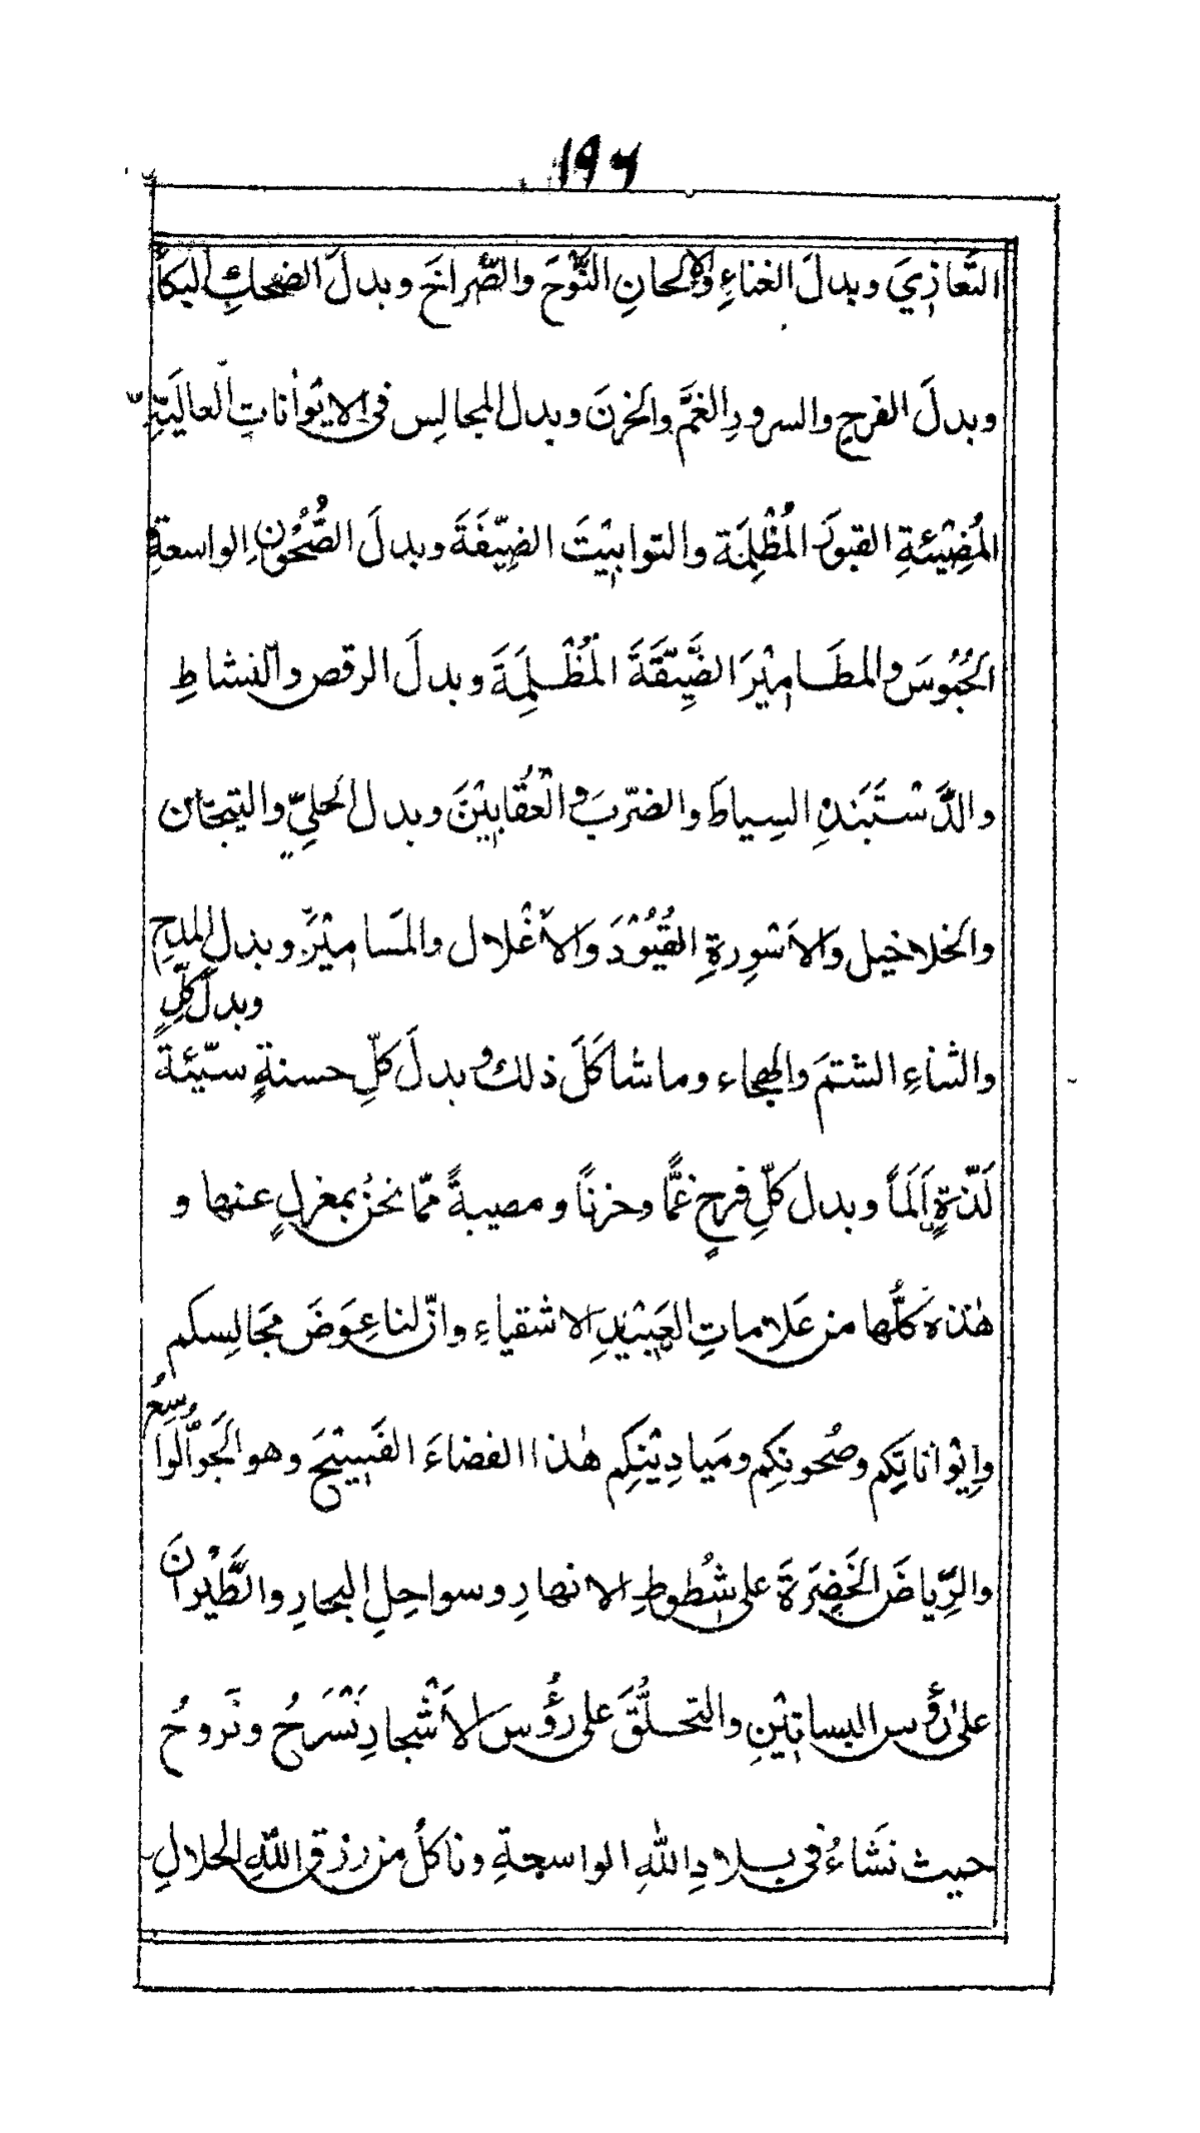 ۱۹۶
التَّعازِيَ وبدلَ الغناءِ والالحانِ النَّوْحَ والصُّراخَ وبدلَ الضحكِ البكاَ
وبدلَ الفرحِ والسرورِ الغمَّ والحزنَ وبدل المجالِس في الايْوانات العاليَةِ
المُضِيْئةِ القبورَ المُظْلِمَة والتوابيْتَ الضيّقَةَ وبدلَ الصُّحُوْنِ الواسعةِ
الحُبُوسَ والمطَامِيْرَ الضَّيِّقَةَ المُظْلِمَةَ وبدلَ الرقصِ والنشاطِ
والدَّسْتَبَنْدِ السِياطَ والضرْبَ والعُقَابَيْنَ وبدل الحليِّ والتيجان
والخلاخيل والاَسْوِرةِ القُيُوْدَ والاَغْلال والمَسامِيْرَ وبدل المدحِ
والثناءِ الشتمَ والهجاء وما شاكَلَ ذلك وبدلَ كلِّ حسنةٍ سيّئةً
وبدلَ كلِّ
لَذّةٍ اَلَماً وبدل كلِّ فرحٍ غمًّا وحزنًا ومصيبةً ممّا نحنُ بمعزلٍ عنها و
هٰذه كلُّها من عَلاماتِ العَبِيْدِ الاشقياءِ وانّ لنا عِوَضَ مَجَالِسكم
وايْواناتِكم وصُحونِكم ومَيادِيْنِكِم هٰذا الفضاءَ الفَسِيْحَ وهو الجَوَّ الوا
وسِعُ
والرِّياضَ الخَضِرَةَ على شُطوطِ الانهارِ وسواحِلِ البحارِ والطَّيْرانَ
علىٰ رؤُسِ البساتيْنِ والتحلُّقَ على رؤُسِ الاَشْجارِ نَسْرَحُ ونَروحُ
حيث نَشاءُ في بلادِ اللهِ الواسعةِ وناكلُ من رزقِ اللهِ الحلالِ